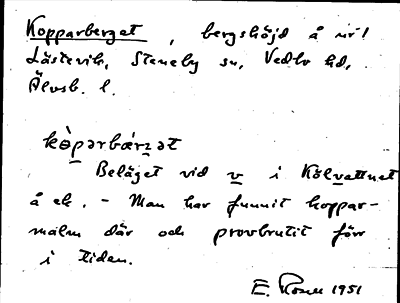 Kopparberget, bergshöjd å nr 1
Lästevik, Steneby sn, Vedbo hd,
Älvsb. l.
kòpərbǽrʒət
Beläget vid v i Kölvattnet
å ek. - Man har funnit koppar-
malm där och provbrutit förr
i tiden.
E. Rosell 1951